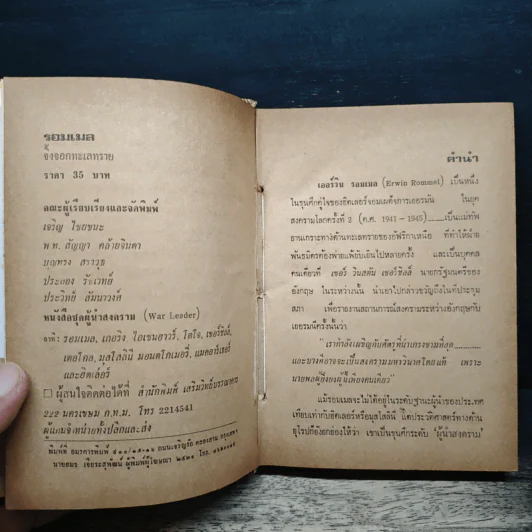 รอมเมล
จิ้งจอกทะเลทราย
ราคา 35 บาท
คณะผู้เรียบเรียงและจัดพิมพ์
เจริญ ไชยชนะ
พ.ท. สัญญา คล้ายจินดา
บุญทรง สราวุธ
ประยูร
ประวิทย์ อัมนาวงศ์
หนังสือชุดผู้นำสงคราม (War Leader)
อาทิ : รอมเมล, เกอริง, ไอเซนอาวร์, โตโจ, เชอร์ชิลล์,
เดอโกล, มุสโสลินี มอนตโกเมอรี่, แมคอาร์เธอร์
และฮิตเล่อร์
ผู้สนใจติดต่อได้ที่ สำนักพิมพ์ เสริมวิทย์บรรณาคาร
222 นครเขษม ก.ท.ม. โทร 2214541
ผู้แทนจำหน่ายทั้งปลีกและส่ง
พิมพ์ที่ ถนนเจริญรัถ คลองสาน กรุงเทพฯ
ผู้พิมพ์ผู้โฆษณา ๒๕๒๑ โทร.
คำนำ
เออร์วิน รอมเมล (Erwin Rommel) เป็นหนึ่ง
ในขุนศึกคู่ใจของฮิตเลอร์จอมเผด็จการเยอรมัน ในยุค
สงครามโลกครั้งที่ 2 (ค.ศ. 1941 - 1945)......เป็นแม่ทัพ
ยานเกราะทางด้านทะเลทรายของอัฟริกาเหนือ ที่ทำให้ฝ่าย
พันธมิตรต้องพ่ายแพ้ยับเยินไปหลายครั้ง และเป็นบุคคล
คนเดียวที่ เซอร์ วินสตัน เชอร์ชิลล์ นายกรัฐมนตรีของ
อังกฤษ ในระหว่างนั้น นำเอาไปกล่าวขวัญถึงในที่ประชุม
สภา เพื่อรายงานสถานการณ์สงครามระหว่างอังกฤษกับ
เยอรมนีครั้งนั้นว่า
"เรากำลังเผชิญกับศัตรูที่น่าเกรงขามที่สุด..........
และบางทีอาจจะเป็นสงครามมหาวินาศโดยแท้ เพราะ
นายพลผู้ยิ่งยงผู้นี้เพียงคนเดียว"
แม้รอมเมลจะไม่ได้อยู่ในระดับฐานะผู้นำของประเทศ
เทียบเท่ากับฮิตเลอร์หรือมุสโสลินี แต่ประวัติศาสตร์ทางด้าน
ยุโรปก็ยังยกย่องให้ว่า เขาเป็นขุนศึกระดับ 'ผู้นำสงคราม'